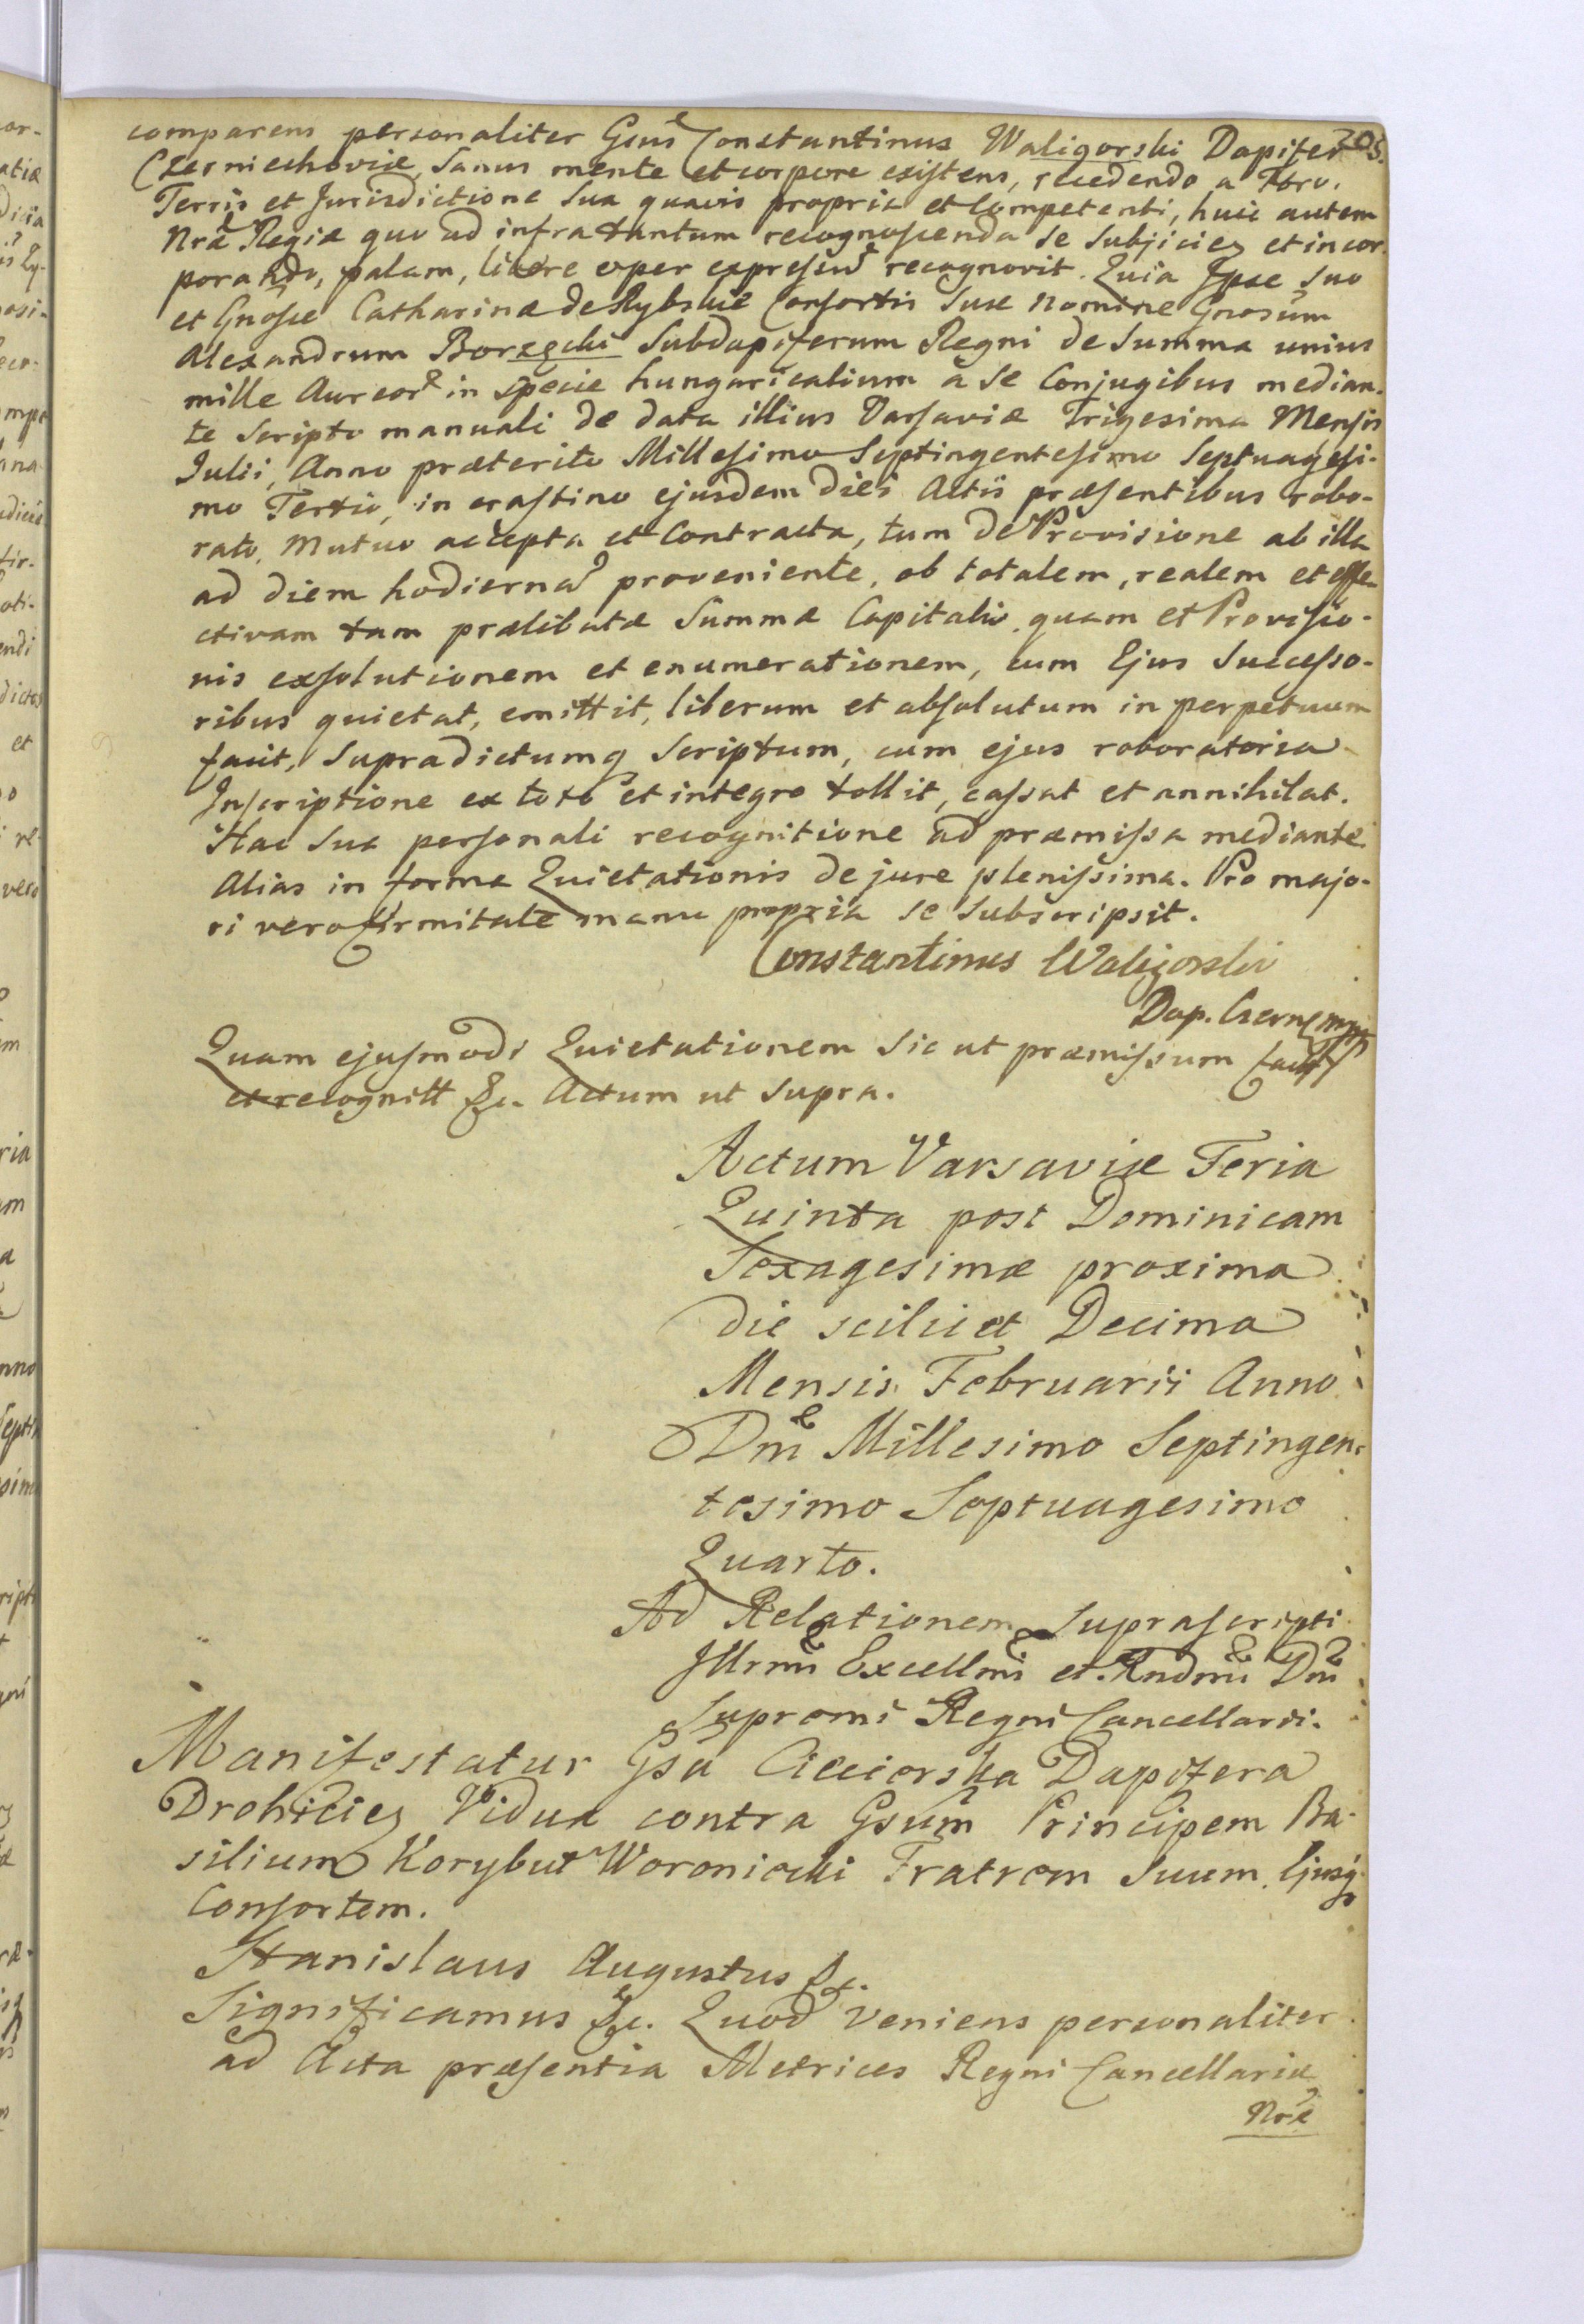 comparens personaliter Gsus Constantinus Waligorski Dapifer 205.
Czerniechoviæ, Sanus mente et corpore existens, recedendo a Foro,
Terris et Jurisdictione Sua quavis propria et Competenti, huic autem
Nræ Regiæ quo ad infra tantum recognoscenda Se Subjiciez et incor-
porando, palam, libere exper expressũ recognovit. Quia Ipse Suo
et Gnosæ Catharinæ de Rybskie Consortis Suæ nomine Gnosum
Alexandrum Borzęcki Subdapiferum Regni de Summa unius
mille Aureor in specie hungaricalium a Se Conjugibus median-
te Scripto manuali de data illius Varsaviæ Trigesima Mensis
Julii, Anno præterito Millesimo Septingentesimo Septuagesi-
mo Tertio, in crastino ejusdem diei Actis præsentibus robo-
rato, Mutuo accepta et Contracta, tum de Provisione ab illa
ad diem hodierna proveniente, ob totalem, realem et effe-
ctivam tam prælibatæ Summæ Capitalis, quam et Provisio-
nis exsolutionem et enumerationem, cum Ejus Successo-
ribus quietat, emittit, liberum et absolutum in perpetuum
facit, Supradictumq Scriptum, cum ejus roboratoria
Inscriptione ex toto et integro tollit, cassat et annihilat.
Hac Sua personali recognitione ad præmissa mediante.
Alias in forma Quietationis de jure plenissima. Pro majo-
ri vero firmitate manu propria se Subscripsit.
Constantinus Waligorski
Dap. Czerne mpp
Quam ejusmodi Quietationem Sic ut præmissum fact
et recognitt &c. Actum ut Supra.
Actum Varsaviæ Feria
Quinta post Dominicam
Sexagesimæ proxima
die scilicet Decima
Mensis Februarii Anno
Dni Millesimo Septingen-
tesimo Septuagesimo
Quarto.
Ad Relationem Suprascripti
Illrmi Excellmi et Rndmi Dni
Supremi Regni Cancellarii.
Manifestatur Gsa Cieciorska Dapifera
Drohiciez Vidua contra Gsum Principem Ba-
silium Korybut Woroniecki Fratrem Suum, Ejusq
Consortem.
Stanislaus Augustus &c.
Significamus &c. Quod veniens personaliter
ad Acta præsentia Metrices Regni Cancellariæ
Nræ